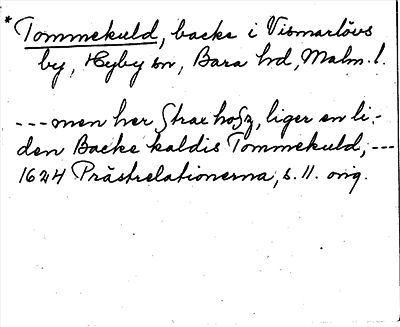 * Tommekuld, backe i Vismarlövs
by, Hyby sn, Bara hd, Malm. l.
--- men her Strax hoSz, liger en li-
den Backe kaldis Tommekuld, ---
1624 Prästrelationerna, s. 11. orig.